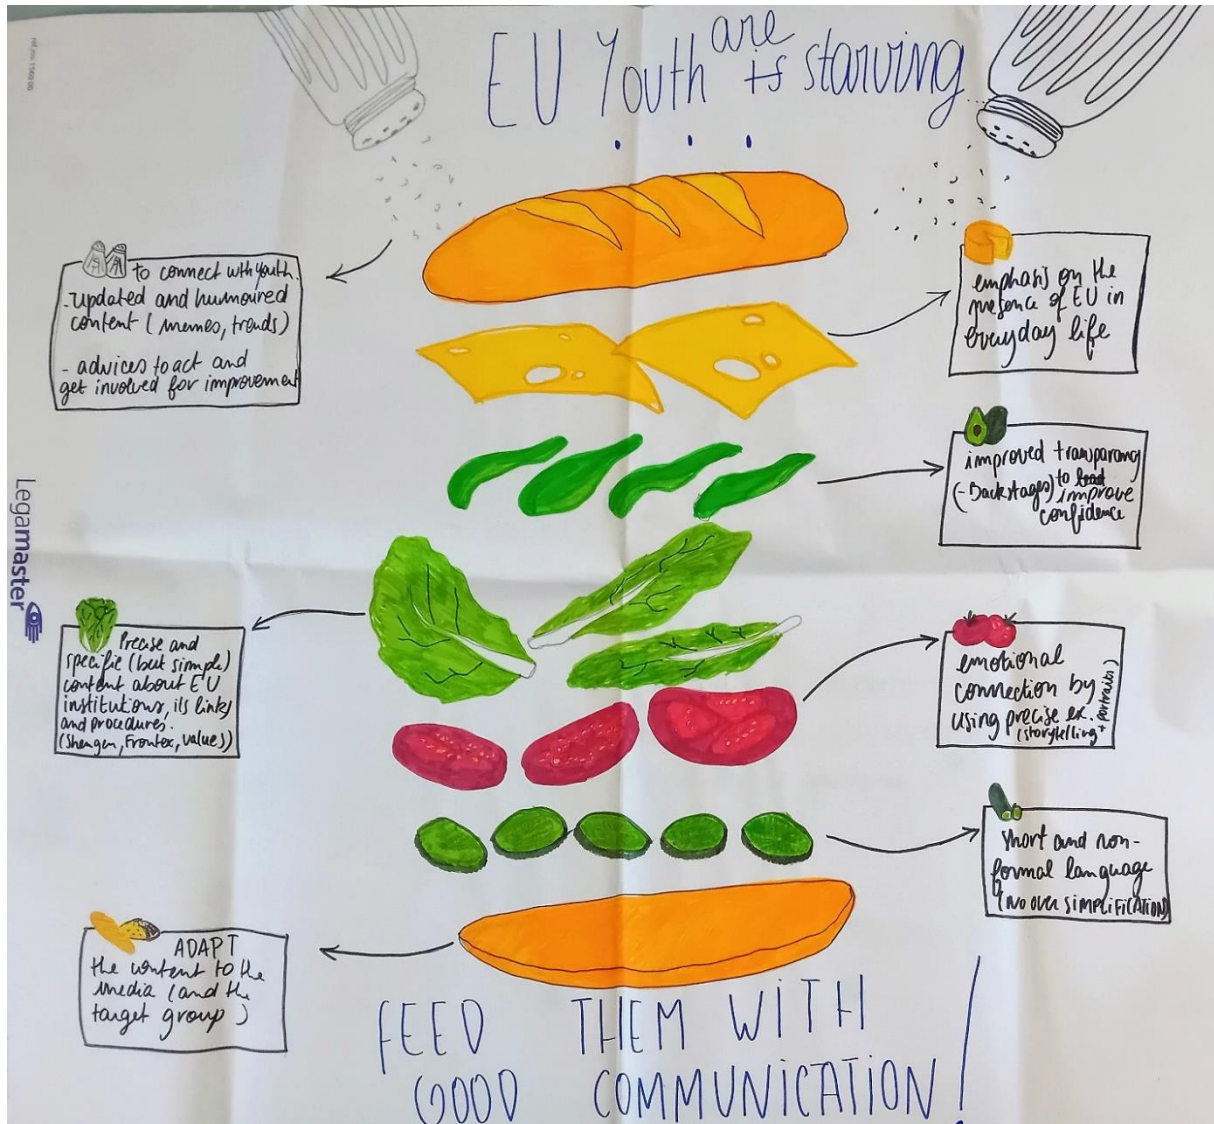 EU Youth are is starving
...
to connect with youth.
- updated and humoured
content (memes, trends)
- advices to act and
get involved for improvement
emphasis on the
presence of EU in
everyday life
improved transparancy
(- Backstages) to lead improve
confidence
Precise and
specific (but simple)
content about EU
institutions, its links
and procedures.
(Shengen, Frontex, value))
emotional
connection by
using precise ex.
(storytelling +
portraits)
short and non-
formal language
(no over simplification)
ADAPT
the content to the
media (and the
target group)
FEED THEM WITH
GOOD COMMUNICATION!
Legamaster